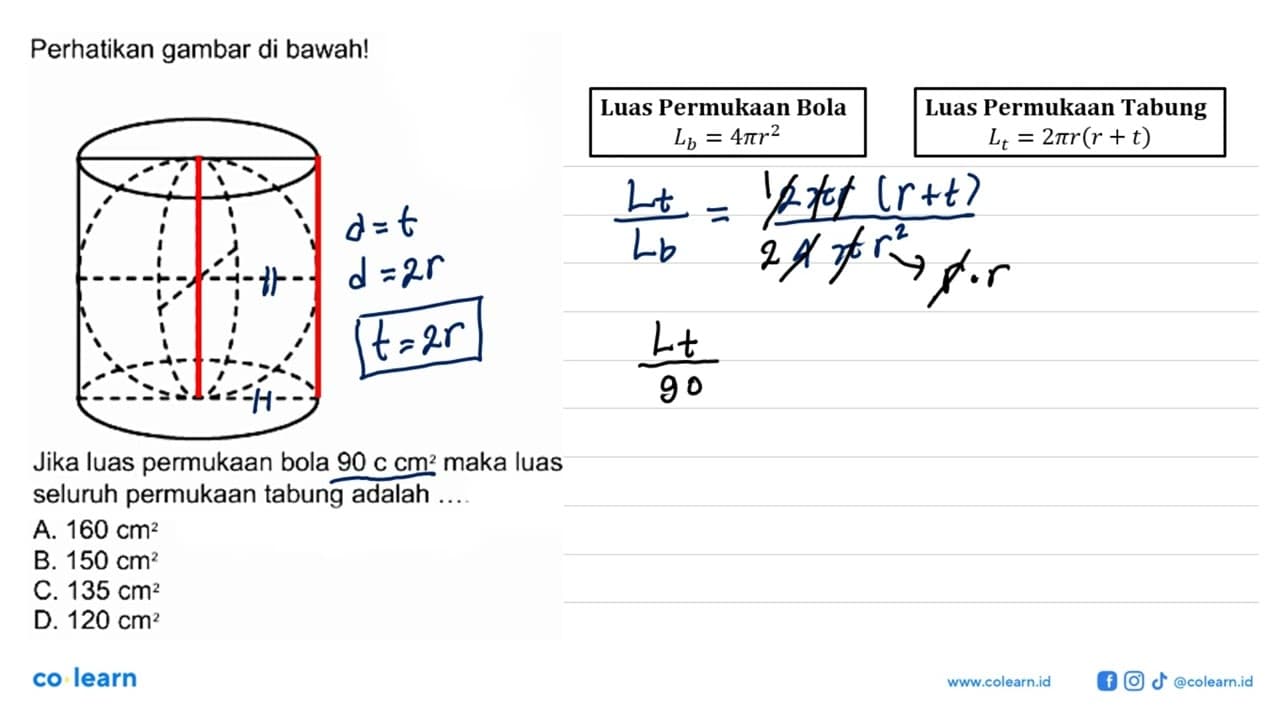 Perhatikan gambar di bawah!
Luas Permukaan Bola
L_b = 4πr²
Luas Permukaan Tabung
L_t = 2πr(r + t)
d = t
d = 2r
t = 2r
Lt / Lb = 1 2πr (r+t) / 2 4 πr² → r.r
Lt / 90
Jika luas permukaan bola 90 c cm² maka luas
seluruh permukaan tabung adalah ....
A. 160 cm²
B. 150 cm²
C. 135 cm²
D. 120 cm²
co learn
www.colearn.id
@colearn.id